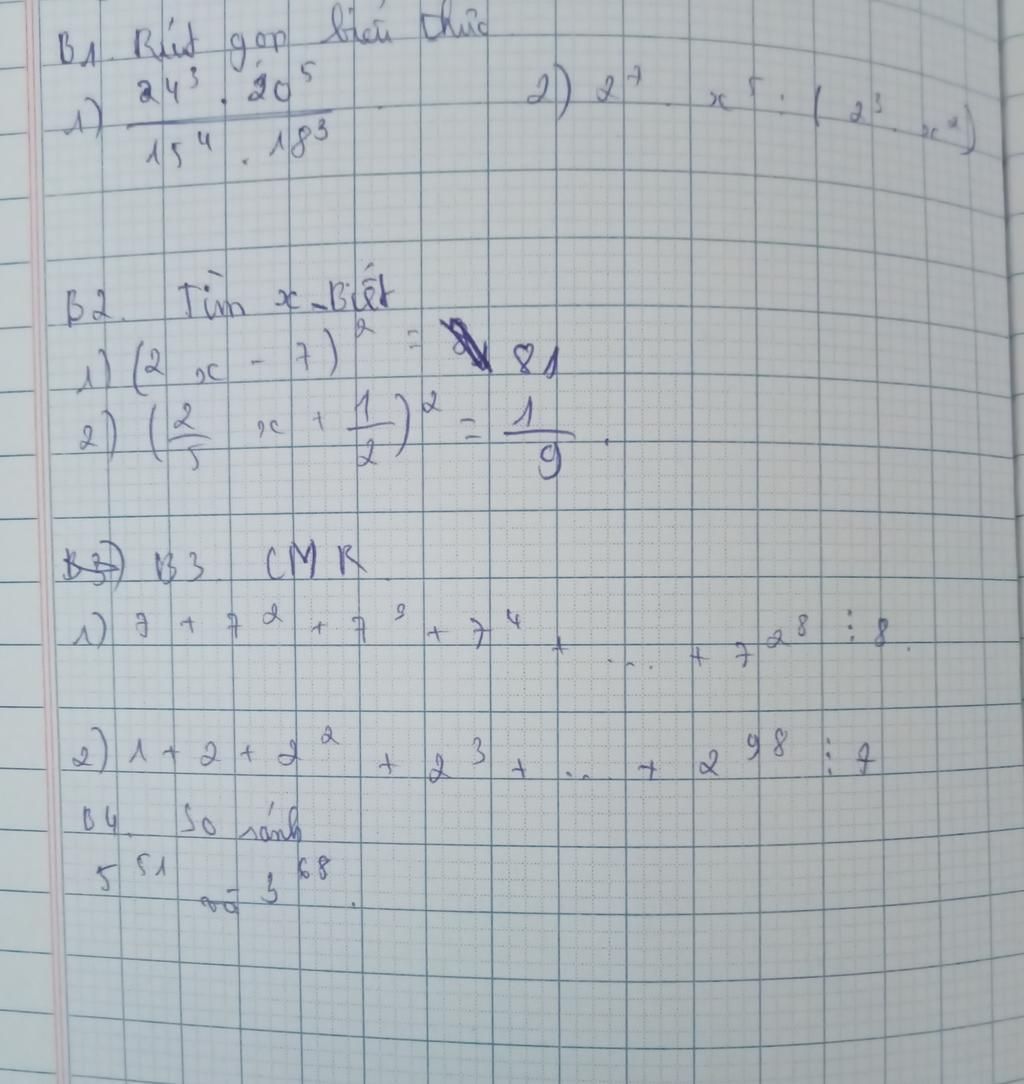 B1. Rút gọn biểu thức
1) \frac{24^3 . 20^5}{15^4 . 18^3} 2) 2^7 x^5 : (2^3 x^2)
B2. Tìm x Biết
1) (2x - 7)^2 = 81
2) (\frac{2}{5} x + \frac{1}{2})^2 = \frac{1}{9} .
B3 CMR
1) 7 + 7^2 + 7^3 + 7^4 + ... + 7^{28} ⋮ 8.
2) 1 + 2 + 2^2 + 2^3 + ... + 2^{98} ⋮ 7
B4. So sánh
5^{51} và 3^{68}.